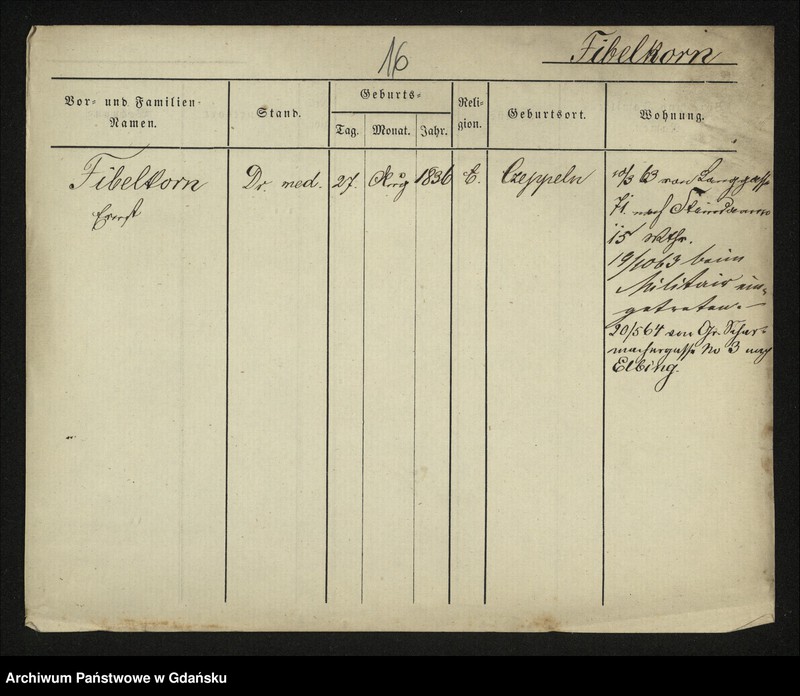 16
Fibelkorn
Vor- und Familien-
Namen.
Stand.
Geburts-
Tag.
Monat.
Jahr.
Reli-
gion.
Geburtsort.
Wohnung.
Fibelkorn
Ernst
Dr. med.
27.
Aug
1836
E.
Czeppeln
10/3 63 von Langgasse
71. nach Steindamm
15
19/10 63 beim
Militair ein-
getreten.—
20/5 64 von Gr. Schar-
machergasse No 3 nach
Elbing.
Archiwum Państwowe w Gdańsku